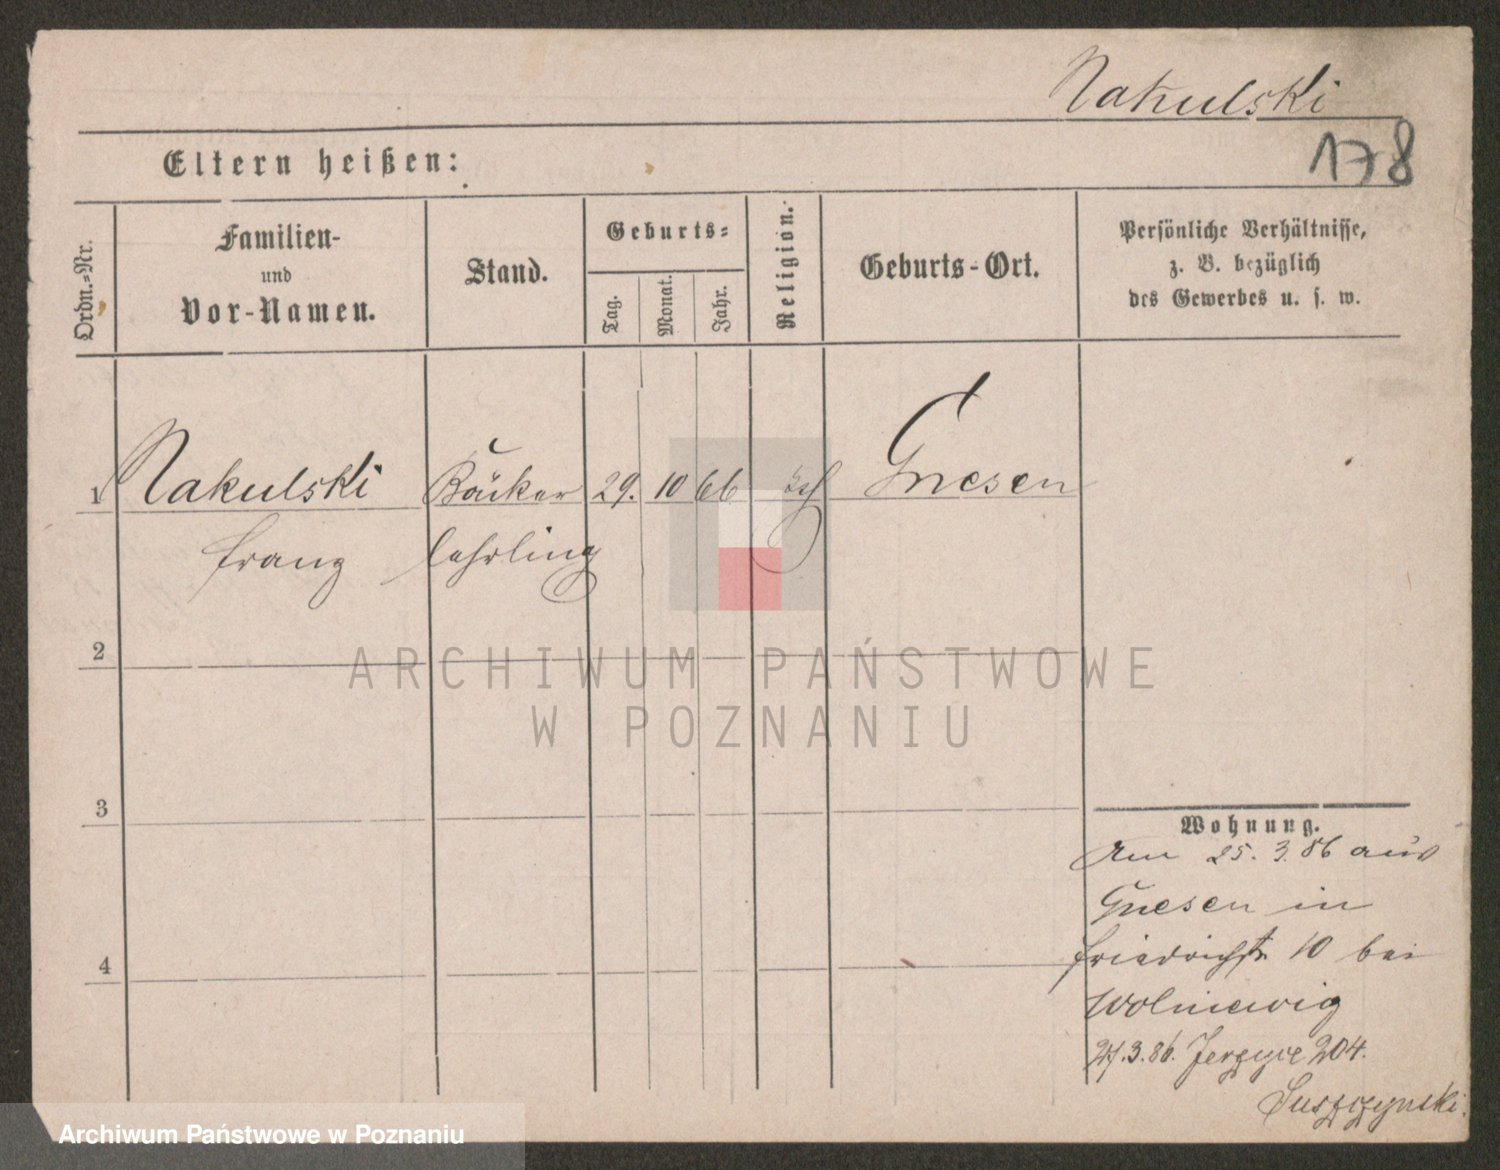 Nakulski
178
Eltern heißen:
Ordn.-Nr.
Familien-
und
Vor-Namen.
Stand.
Geburts-
Tag.
Monat.
Jahr.
Religion.
Geburts-Ort.
Persönliche Verhältnisse,
z. B. bezüglich
des Gewerbes u. s. w.
1 Nakulski Bäcker 29. 10 66 Gnesen
Franz lehrling
2
ARCHIWUM PAŃSTWOWE
W POZNANIU
3
Wohnung.
Am 25. 3. 86 aus
Gnesen in
4
Friedrichstr 10 bei
Wolniewig
27.3.86. Jerzyce 204.
Suszczynski.
Archiwum Państwowe w Poznaniu